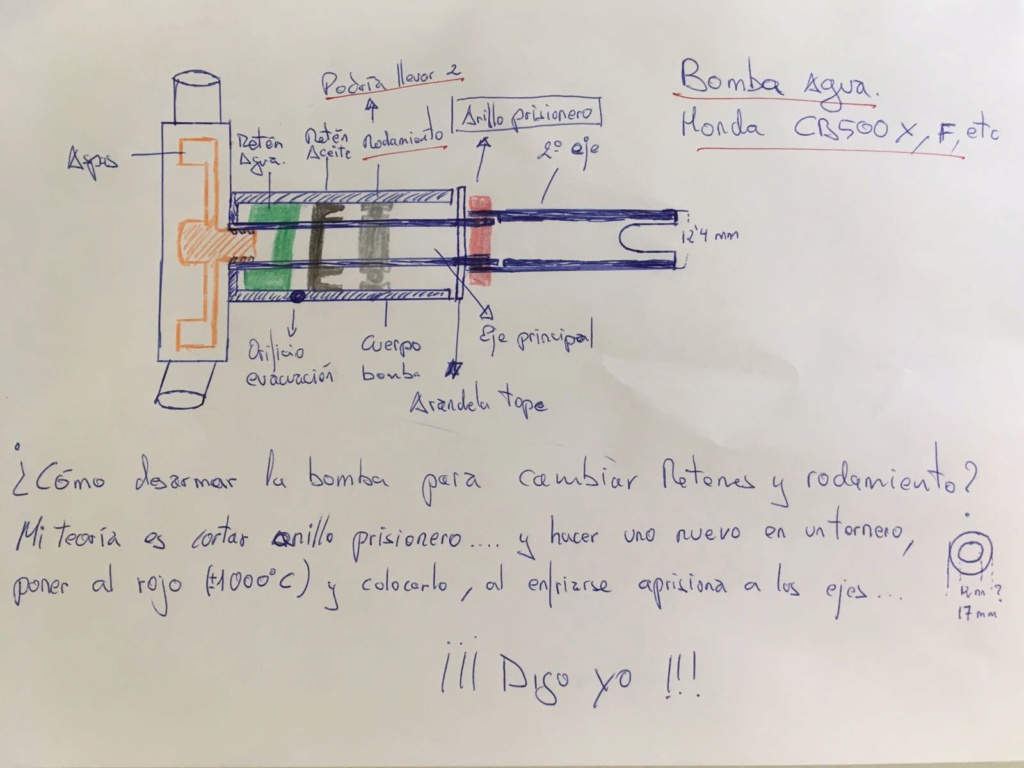 Bomba Agua.
Honda CB500X, F, etc
Podría llevar 2
Anillo prisionero
Retén Agua.
Retén Aceite
Rodamiento
2º eje
Aspas
12'4 mm
Orificio evacuación
Cuerpo bomba
Eje principal
Arandela tope
¿Cómo desarmar la bomba para cambiar Retenes y rodamiento?
Mi teoría es cortar anillo prisionero.... y hacer uno nuevo en un tornero,
poner al rojo (±1000°C) y colocarlo, al enfriarse aprisiona a los ejes...
17 mm
¡¡¡ Digo yo !!!